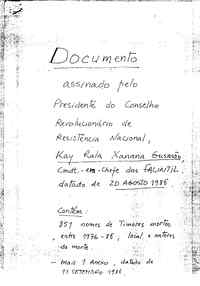 Documento
assinado pelo
Presidente do Conselho
Revolucionário de
Resistência Nacional,
Kay Rala Xanana Gusmão,
Cmdt-em-Chefe das FALINTIL
datado de 20 AGOSTO 1986
Contém:
851 nomes de Timores mortos
, entre 1976-86, local e
da morte.
- Mais 1 Anexo, datado de
11 SETEMBRO 1986